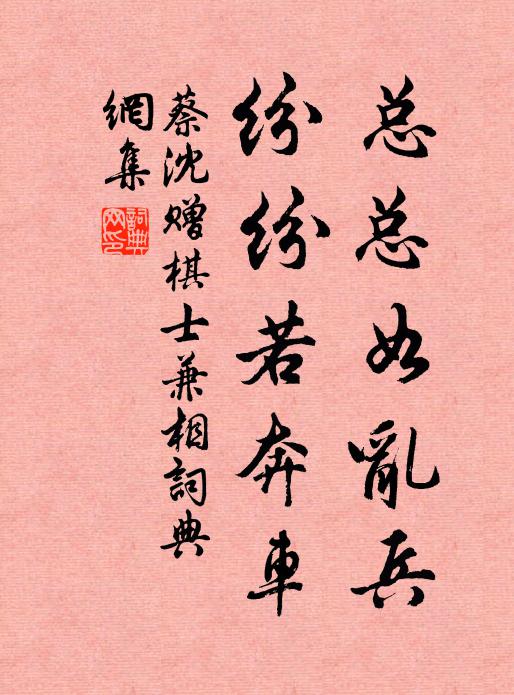 总总如亂兵
纷纷若奔車
蔡沈赠棋士兼相詞典
網集
詞典網印